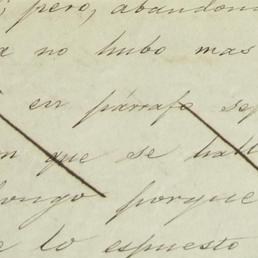 pero, abandon
a no hubo mas
en párrafo sep
n que se hall
longo porque
e lo espuesto